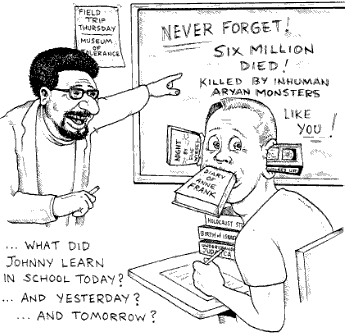 FIELD
TRIP
THURSDAY
MUSEUM
OF
TOLERANCE
NEVER FORGET!
SIX MILLION
DIED!
KILLED BY INHUMAN
ARYAN MONSTERS
LIKE
YOU!
NIGHT
DIARY
OF
ANNE
FRANK
HOLOCAUST
BIRTH OF ISRAEL
... WHAT DID
JOHNNY LEARN
IN SCHOOL TODAY?
... AND YESTERDAY?
... AND TOMORROW?